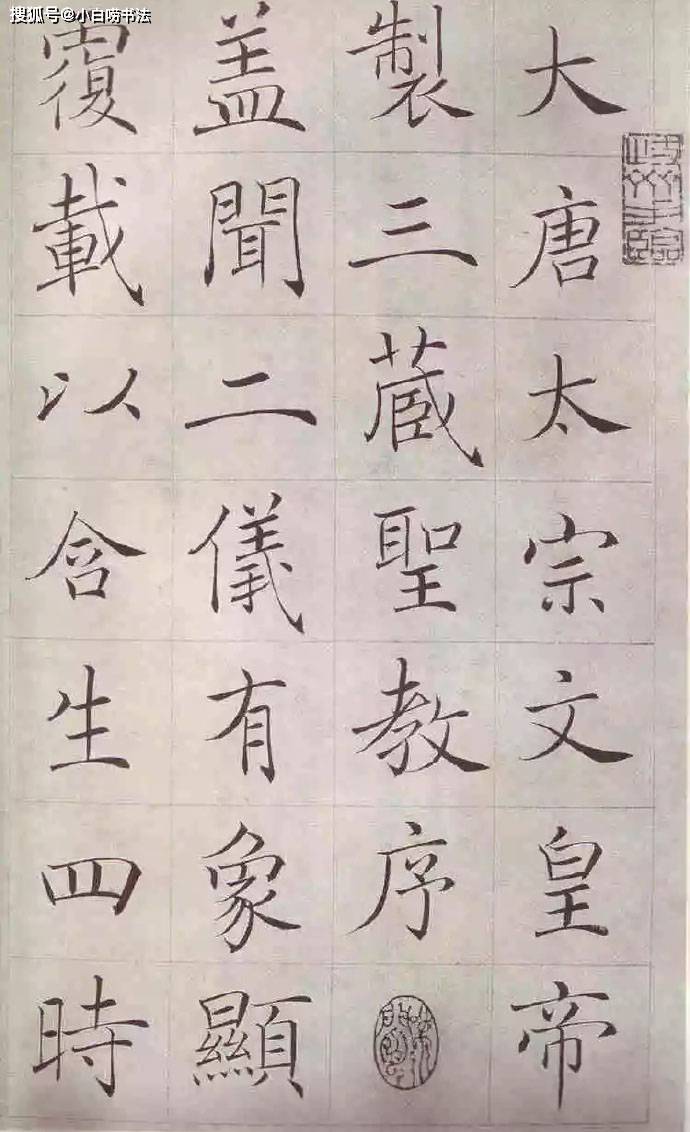 搜狐号@小白唠书法
大唐太宗文皇帝
製三蔵聖教序
蓋聞二儀有象顯
覆載以含生四時